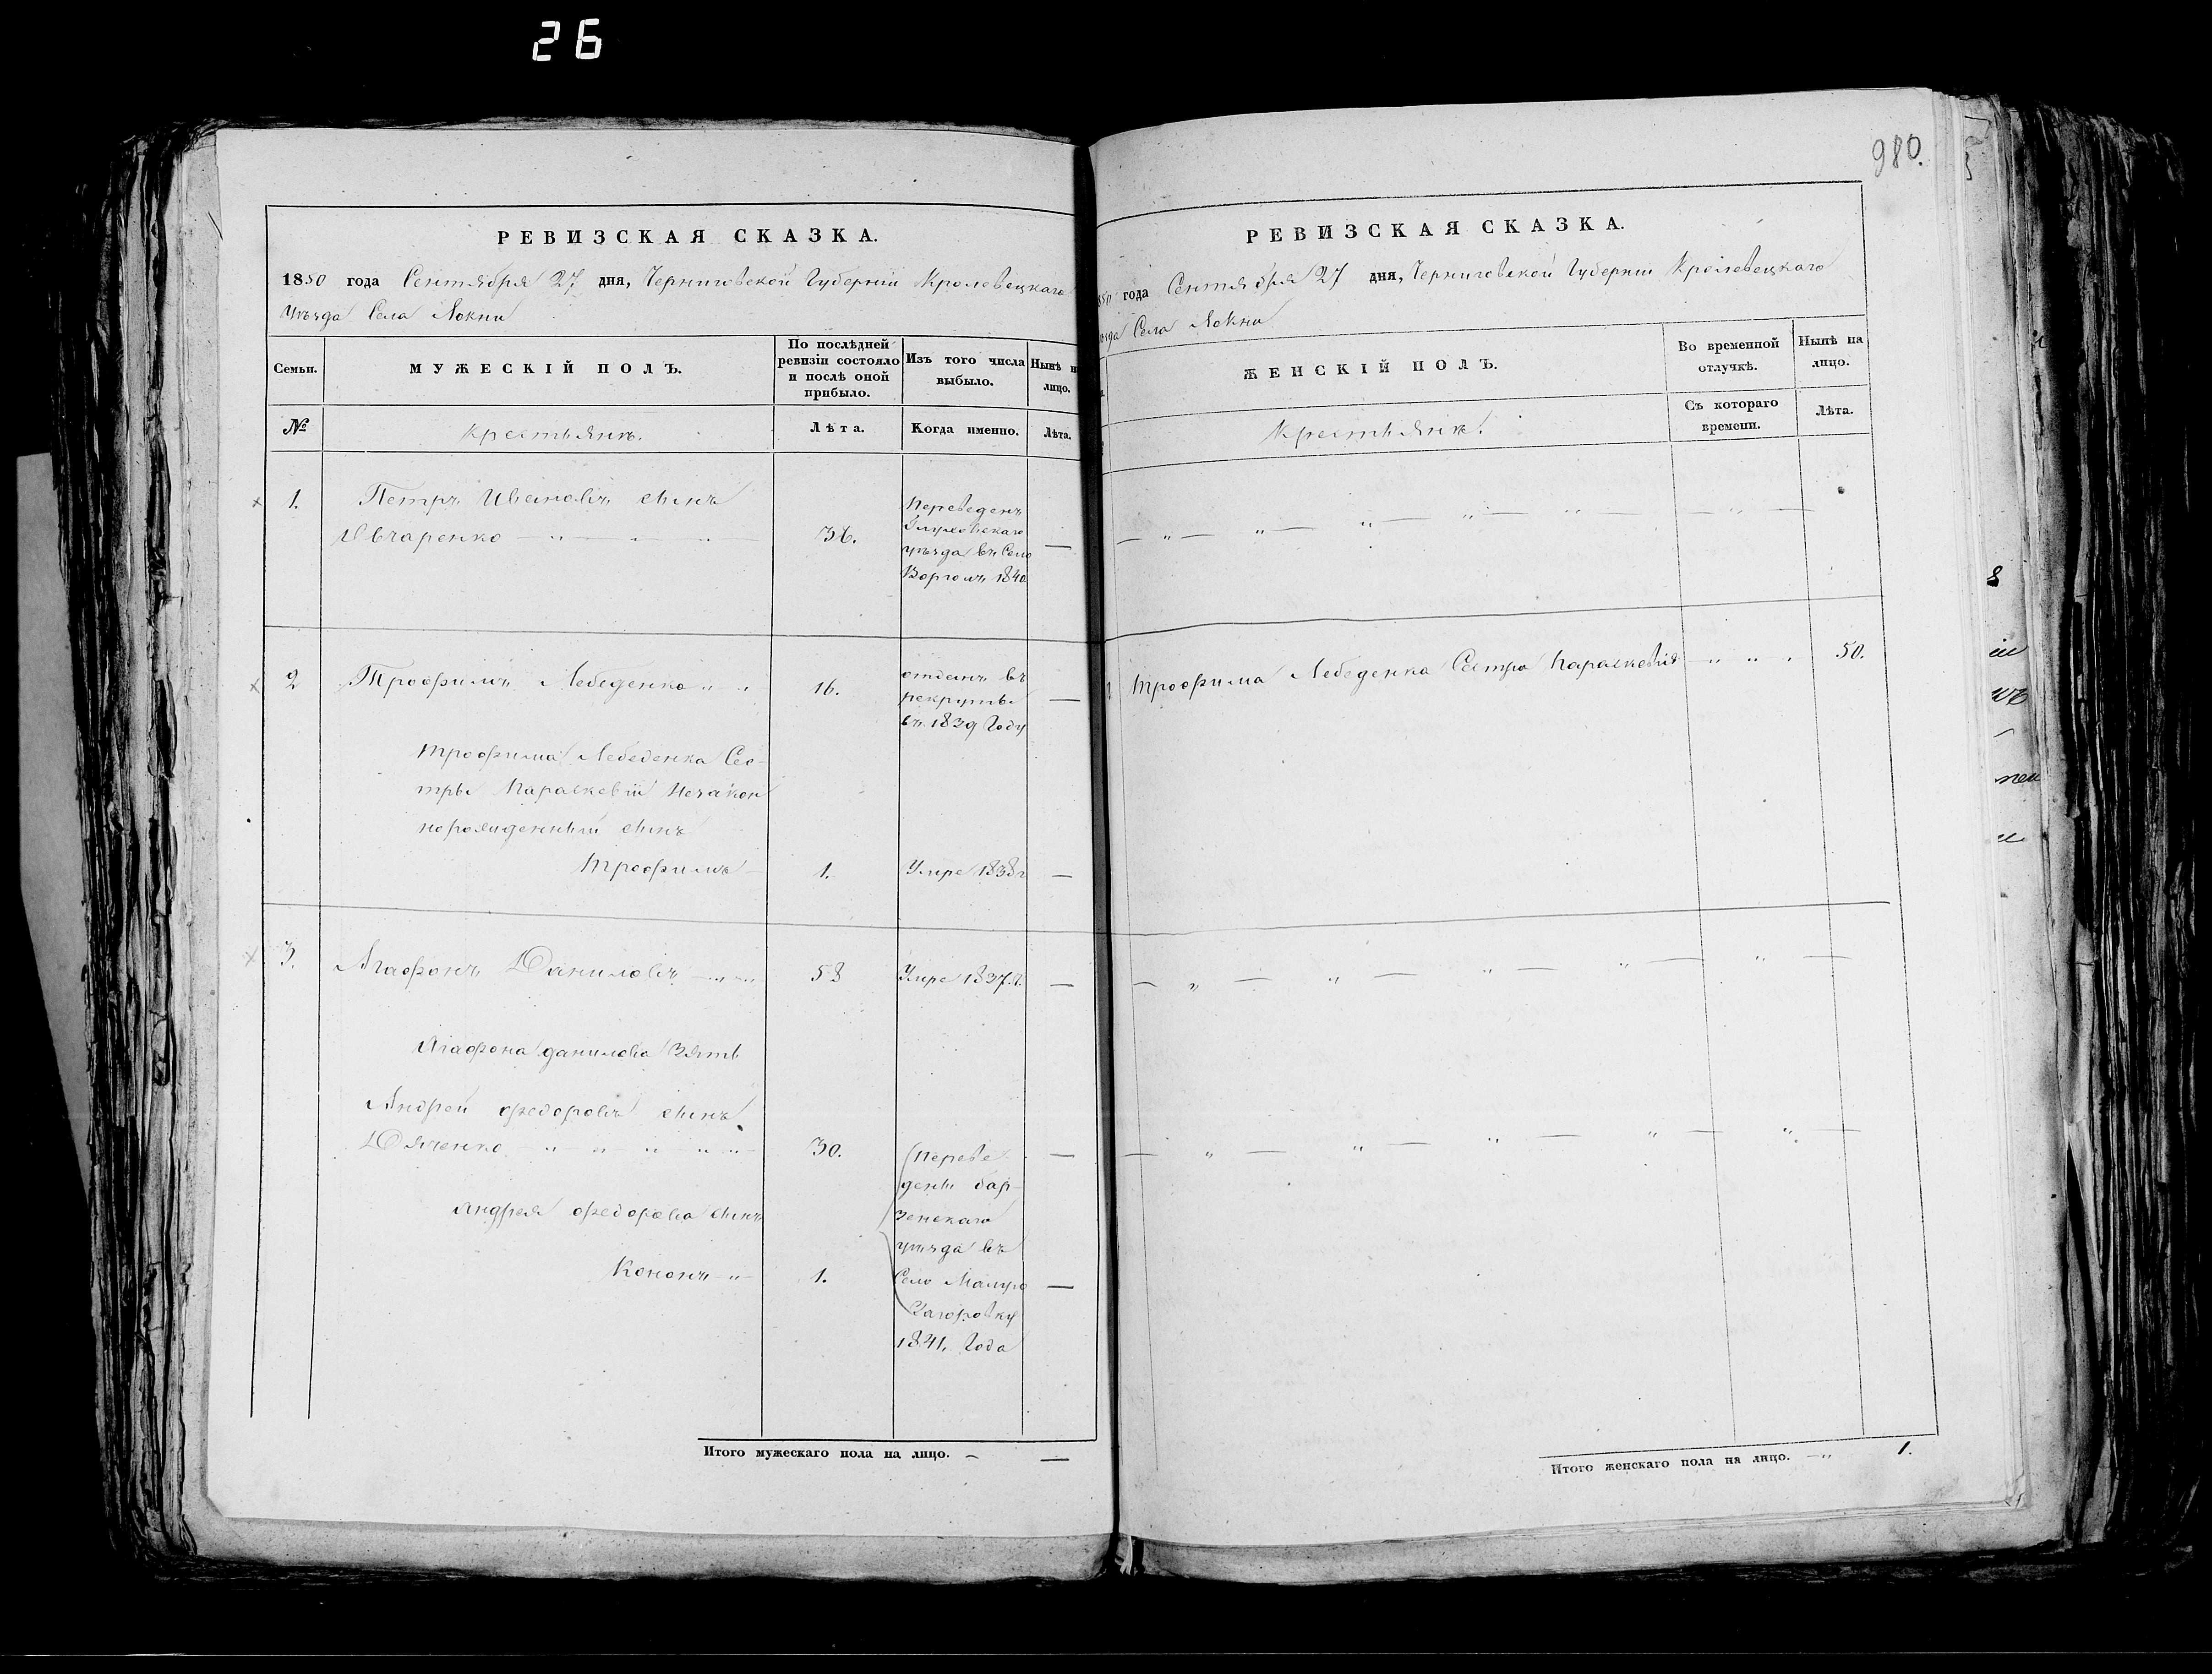 26
980.
РЕВИЗСКАЯ СКАЗКА.
1850 года Сентября 27 дня, Черниговской Губерніи Кролевецкаго
Уѣзда Села Локни
Семьи.
МУЖЕСКІЙ ПОЛЪ.
По послѣдней
ревизіи состояло
и послѣ оной
прибыло.
Изъ того числа
выбыло.
Нынѣ н
лицо.
№
Крестьянъ.
Лѣта.
Когда именно.
Лѣта.
1.
Петръ Ивановъ сынъ
Овчаренко
36.
Переведенъ
Глуховскаго
уѣзда въ Село
Воргolъ 1840
—
2
Трофимъ Лебеденко
16.
отданъ въ
рекруты
въ 1839 Году
—
Трофима Лебеденка Сес-
тры Параскевіи Незакон
норожденный сынъ
Трофимъ
1.
Умре 1838г
—
3.
Агафонъ Даниловъ
58
Умре 1837.г.
—
Агафона данилова Зять
Андрей федоровъ сынъ
Дяченко
30.
Переве
дены бор-
зенскаго
уѣзда въ
Село
Загоровку
1841. Года
—
Андрея федорова сынъ
Кононъ
1.
—
Итого мужескаго пола на лицо. — —
РЕВИЗСКАЯ СКАЗКА.
850 года Сентября 27 дня, Черниговской Губерніи Кролевецкаго
ѣзда Села Локни
ЖЕНСКІЙ ПОЛЪ.
Во временной
отлучкѣ.
Нынѣ на
лицо.
Крестьянъ.
Съ котораго
времени.
Лѣта.
Трофима Лебеденка Сестра Параскевія
50.
Итого женскаго пола на лицо. — 1.